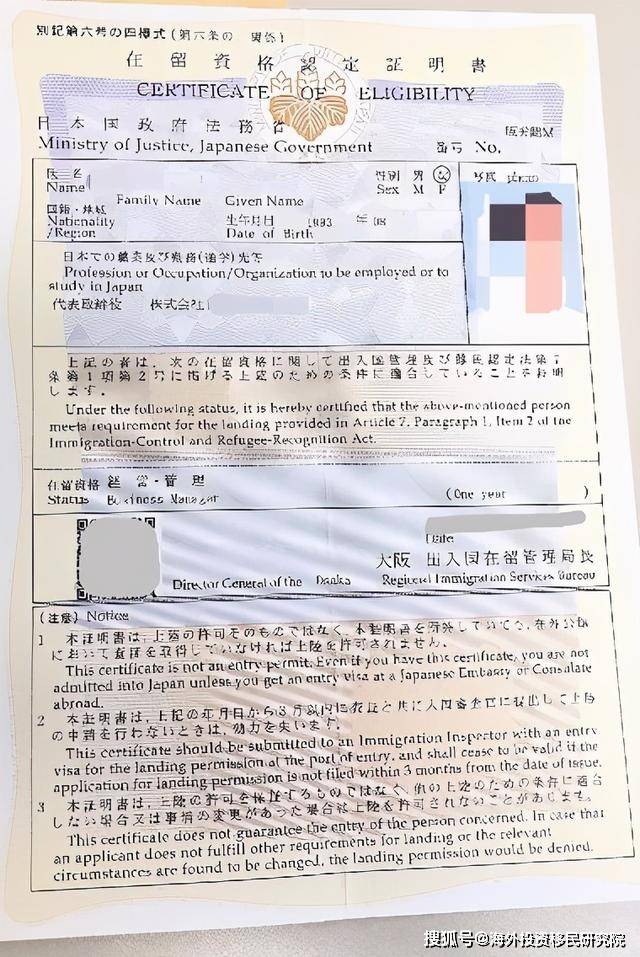 別記第六号の四様式(第六条の 関係)
在留資格認定証明書
CERTIFICATE OF ELIGIBILITY
日本国政府法務省
Ministry of Justice, Japanese Government 番号 No.
氏名 性別 男 女 写真 photo
Name Sex M F
Family Name Given Name
国籍・地域 生年月日 1983 年 08
Nationality Date of Birth
/Region
日本での職業及び勤務(通学)先等
Profession or Occupation/Organization to be employed or to
study in Japan
代表取締役 株式会社
上記の者は、次の在留資格に関して出入国管理及び難民認定法第7
条第1項第2号に掲げる上陸のための条件に適合していることを証明
します。
Under the following status, it is hereby certified that the above-mentioned person
meets requirement for the landing provided in Article 7, Paragraph 1, Item 2 of the
Immigration-Control and Refugee-Recognition Act.
在留資格 経営・管理
Status Business Manager (One year )
Date
大阪 出入国在留管理局長
Director General of the Osaka Regional Immigration Services Bureau
(注意) Notice
1 本証明書は、上陸の許可そのものではなく、本証明書を所持していても、在外公館
において査証を取得していなければ上陸を許可されません。
This certificate is not an entry permit. Even if you have this certificate, you are not
admitted into Japan unless you get an entry visa at a Japanese Embassy or Consulate
abroad.
2 本証明書は、上記の年月日から3月以内に査証と共に入国審査官に提出して上陸
の申請を行わないときは、効力を失います。
This certificate should be submitted to an Immigration Inspector with an entry
visa for the landing permission at the port of entry, and shall cease to be valid if the
application for landing permission is not filed within 3 months from the date of issue.
3 本証明書は、上陸の許可を保証するものではなく、他の上陸のための条件に適合
しない場合又は事情の変更があった場合は上陸を許可されないことがあります。
This certificate does not guarantee the entry of the person concerned. In case that
an applicant does not fulfill other requirements for landing or the relevant
circumstances are found to be changed, the landing permission would be denied.
搜狐号@海外投资移民研究院